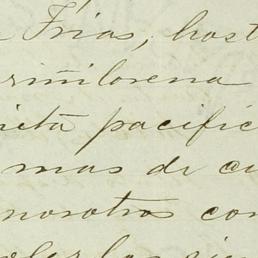 Frias, host
riñilorena
ieta pacific
mas de cu
nosotros con